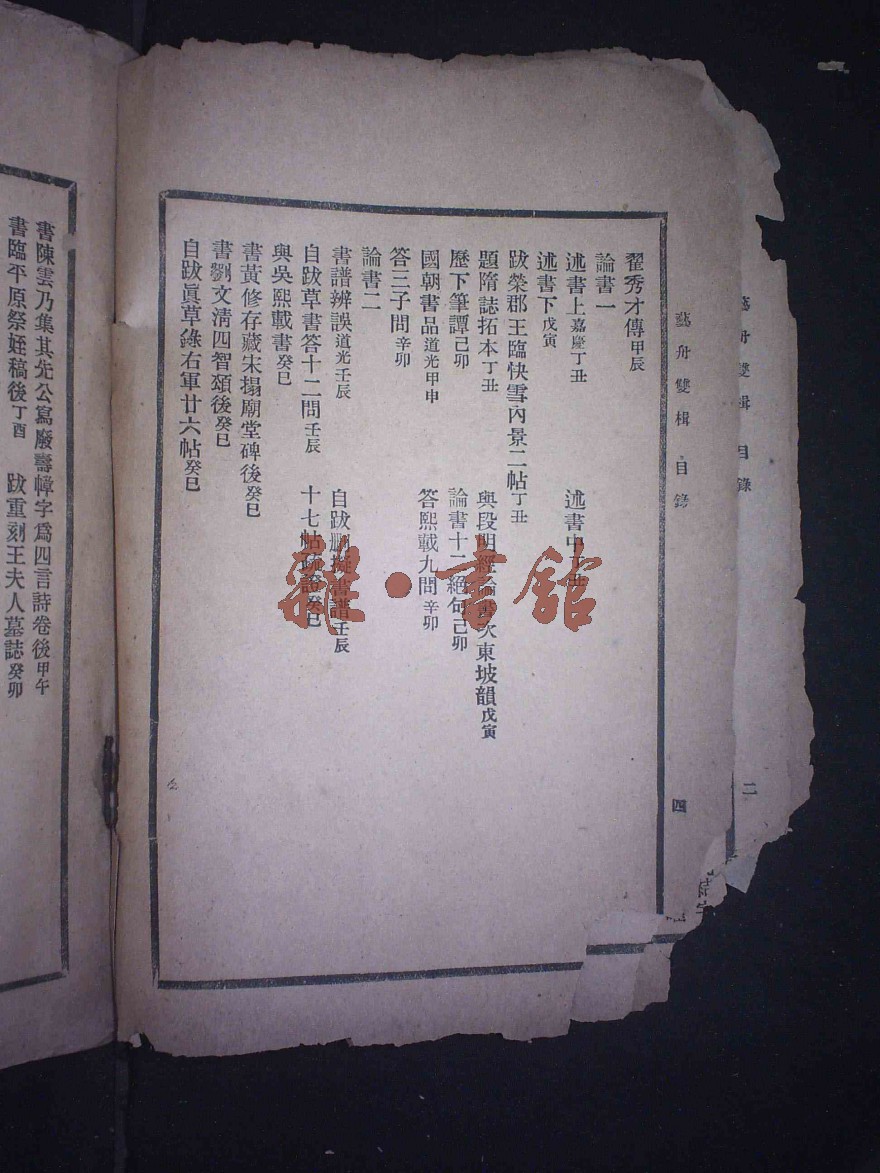 藝舟雙楫 目錄
二
藝舟雙楫 目錄
四
翟秀才傳甲辰
論書一
述書上嘉慶丁丑 述書中丁丑
述書下戊寅
跋榮郡王臨快雪內景二帖丁丑
題隋誌拓本丁丑 與段明經論書次東坡韻戊寅
歷下筆譚己卯 論書十二絕句己卯
國朝書品道光甲申 答熙載九問辛卯
答三子問辛卯
論書二
書譜辨誤道光壬辰 自跋刪擬書譜壬辰
自跋草書答十二問壬辰 十七帖疏證癸巳
與吳熙載書癸巳
書黃修存藏宋搨廟堂碑後癸巳
書劉文清四智頌後癸巳
自跋眞草錄右軍廿六帖癸巳
書陳雲乃集其先公寫廢壽幛字爲四言詩卷後甲午
書臨平原祭姪稿後丁酉 跋重刻王夫人墓誌癸卯
雜·書館